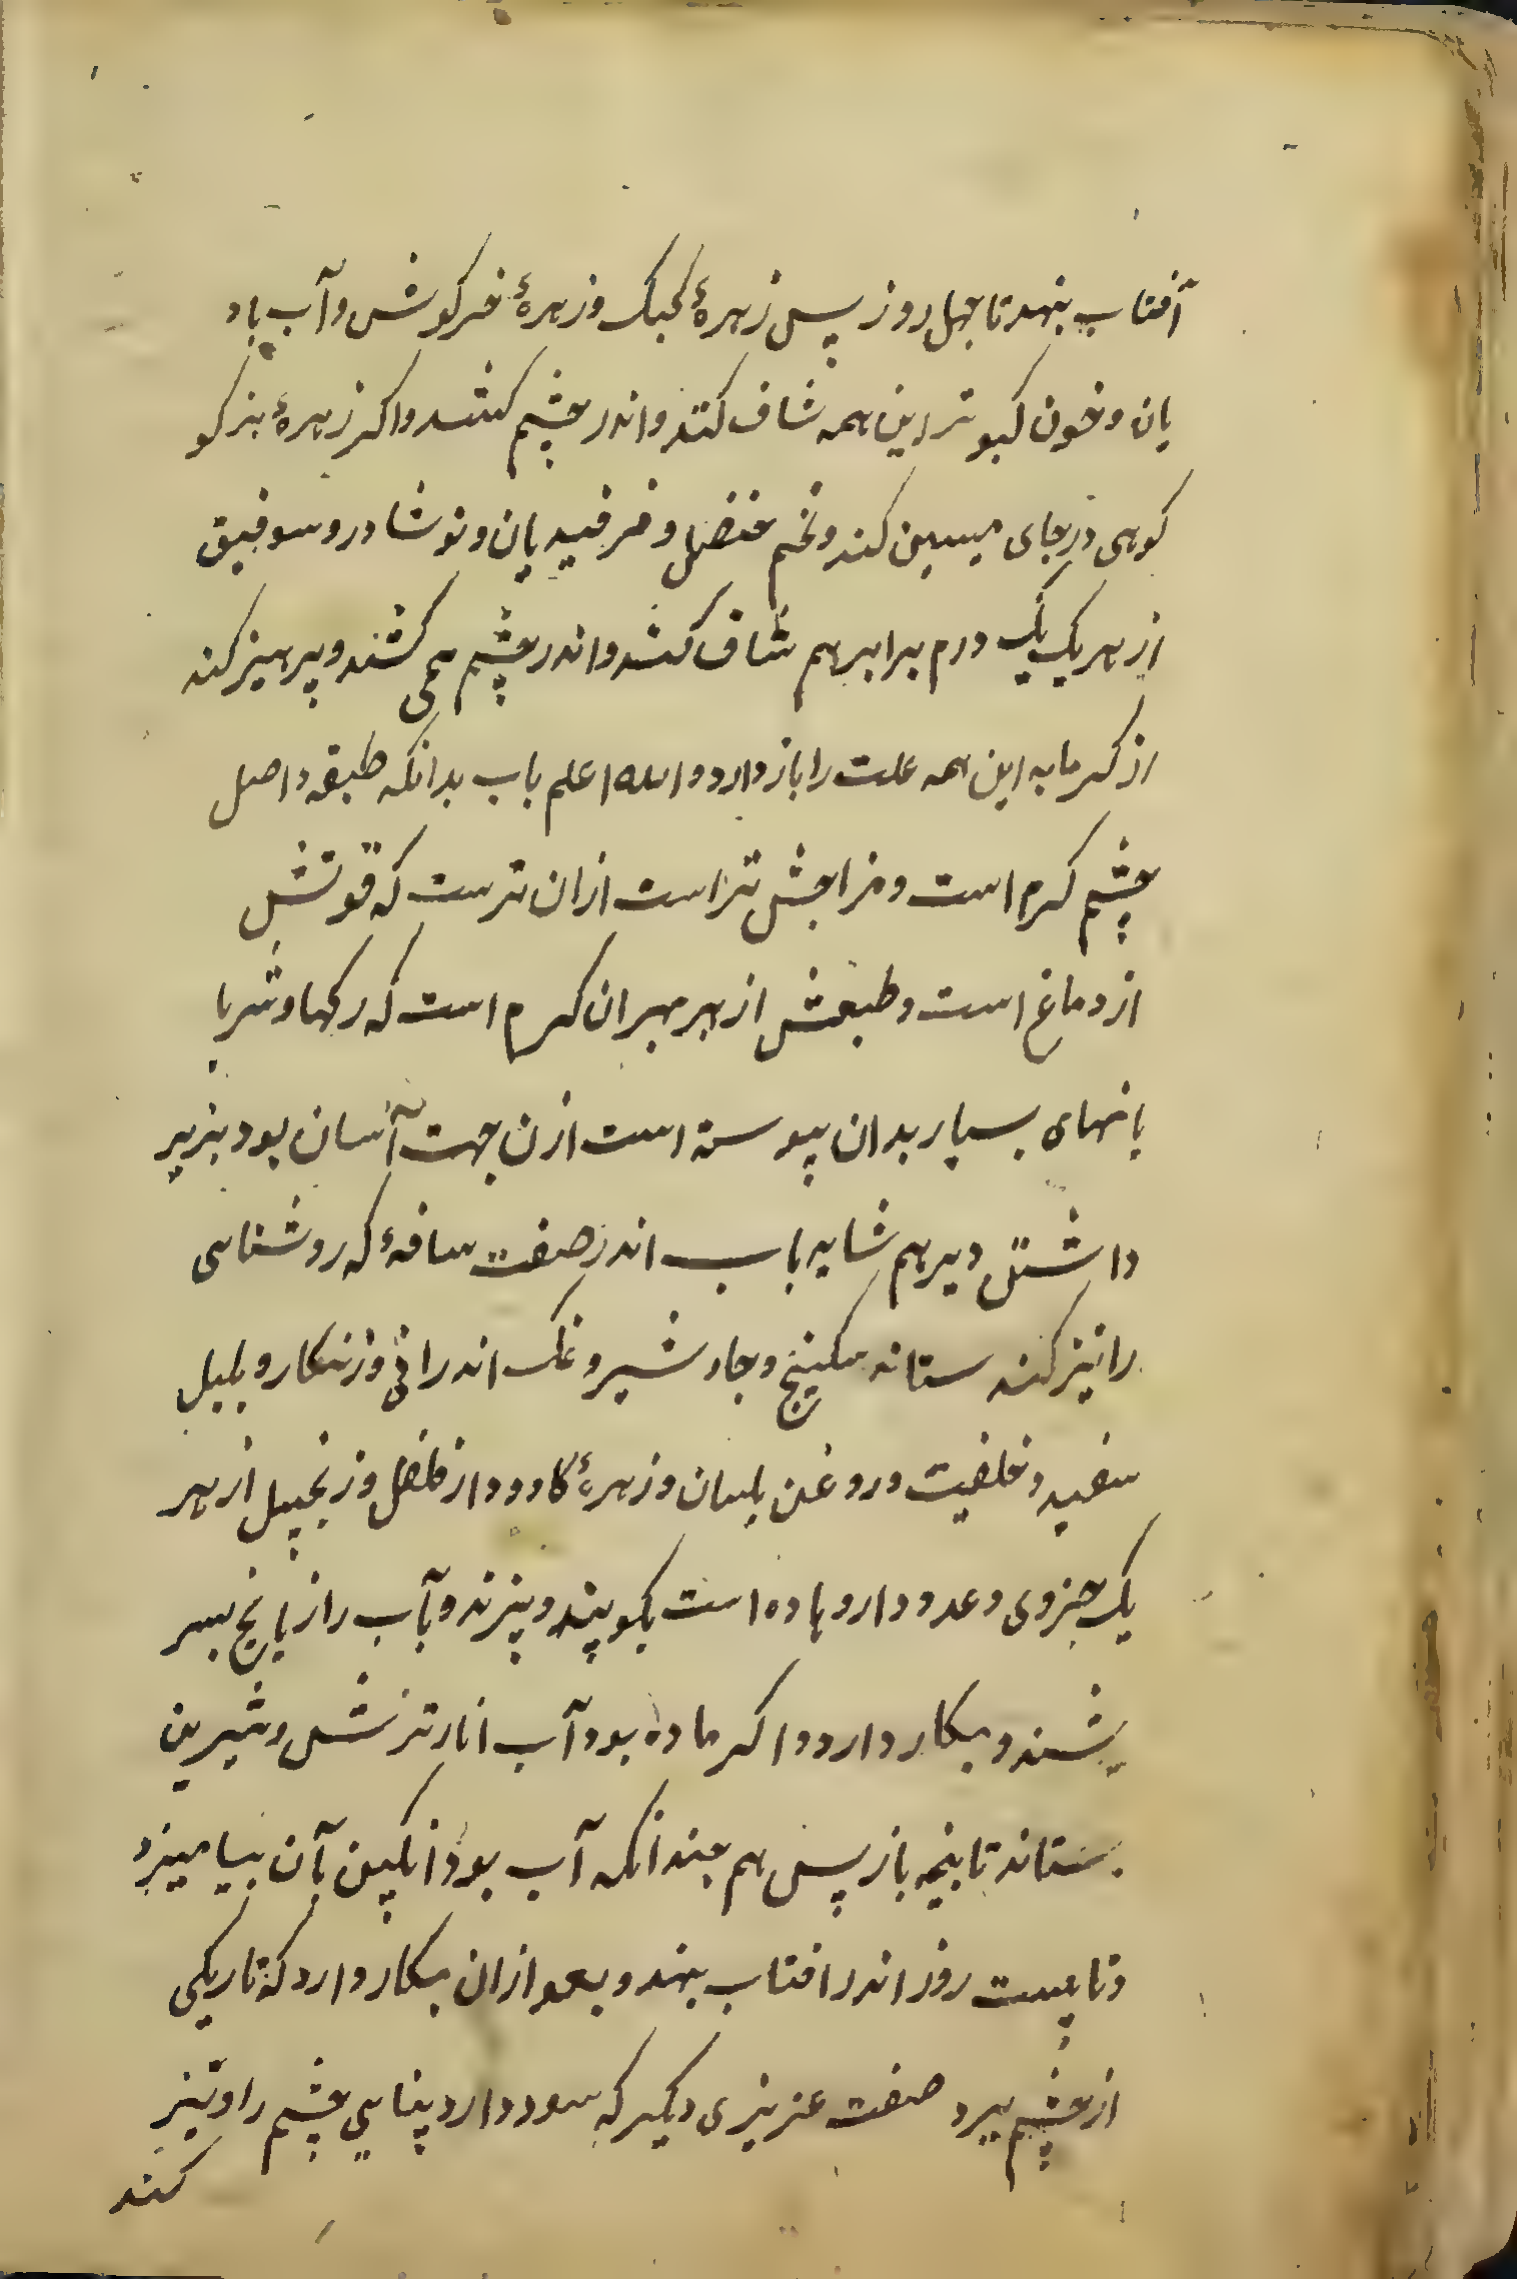 آفتاب بنهد تا جهل روز پس زهرهٔ کبک و زهرهٔ خرکوش و آب باد
یان و خون کبوتر این همه شاف کنند و اندر چشم کشد و اکر زهرهٔ بز کو
کوهی در جای مسین کند و تخم حنضل و فرفید یان و نوشادر و سوفیق
از هر یک یک درم برابر هم شاف کشد و اندر چشم همی کشند و پرهیز کند
از کرمابه این همه علت را باز دارد والله اعلم باب بدانکه طبقه و اصل
چشم کرم است و مزاجش تر است ازان ترست که قوتش
از دماغ است و طبعش از بهر بهران کرم است که رکها و شریا
یانهای بسیار بدان پیوسته است ازن جهت آسان بود بزیر
داشتن دیر هم شاید باب اندر صفت سافهٔ که روشناسی
را تیز کند ستانه سکبینج و جاوشیر و نمک اندرانی و زنکار و بلبل
سفید و خلفیت و روغن بلسان و زهرهٔ کاو و دار فلفل و زنجبیل از هر
یک جزوی و عدد داروها ده است بکوبند و بپزند و بآب رازیانج بسر
یشند و بکار دارد و اکر ماده بود آب انار ترش و شیرین
بستاند تا بنیمه باز پس هم چندانکه آب بود انکبین بآن بیامیزد
و تا بیست روز اندر افتاب بنهد و بعد ازان بکار دارد که تاریکی
از چشم ببرد صفت عزیزی دیکر که سود دارد بینایی چشم را و تیز
کند